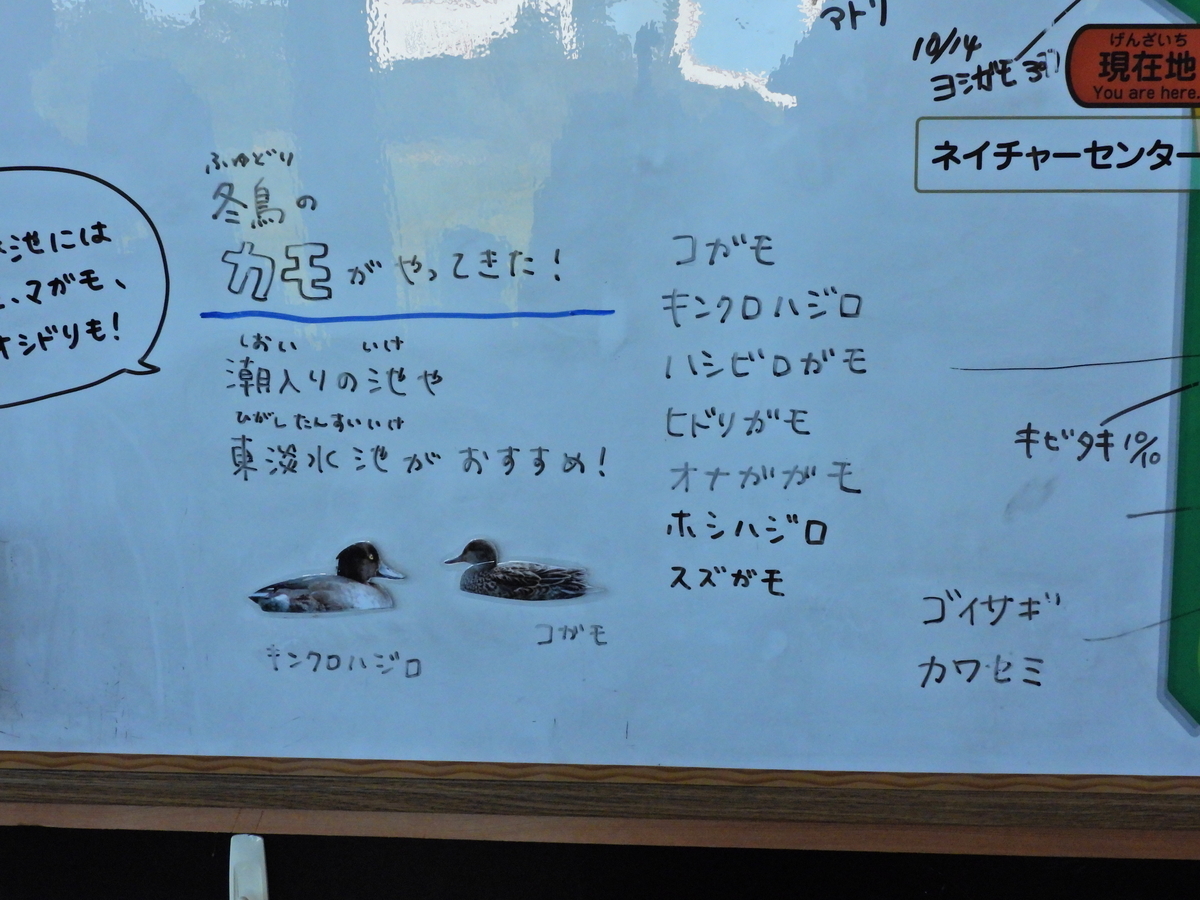 アトリ
10/14
ヨシガモ 3羽
げんざいち
現在地
You are here.
ネイチャーセンター
池には
マガモ、
オシドリも!
ふゆどり
冬鳥の
カモがやってきた!
しおい いけ
潮入りの池や
ひがしたんすいいけ
東淡水池がおすすめ!
キンクロハジロ
コガモ
コガモ
キンクロハジロ
ハシビロガモ
ヒドリガモ
オナガガモ
ホシハジロ
スズガモ
キビタキ 10/10
ゴイサギ
カワセミ